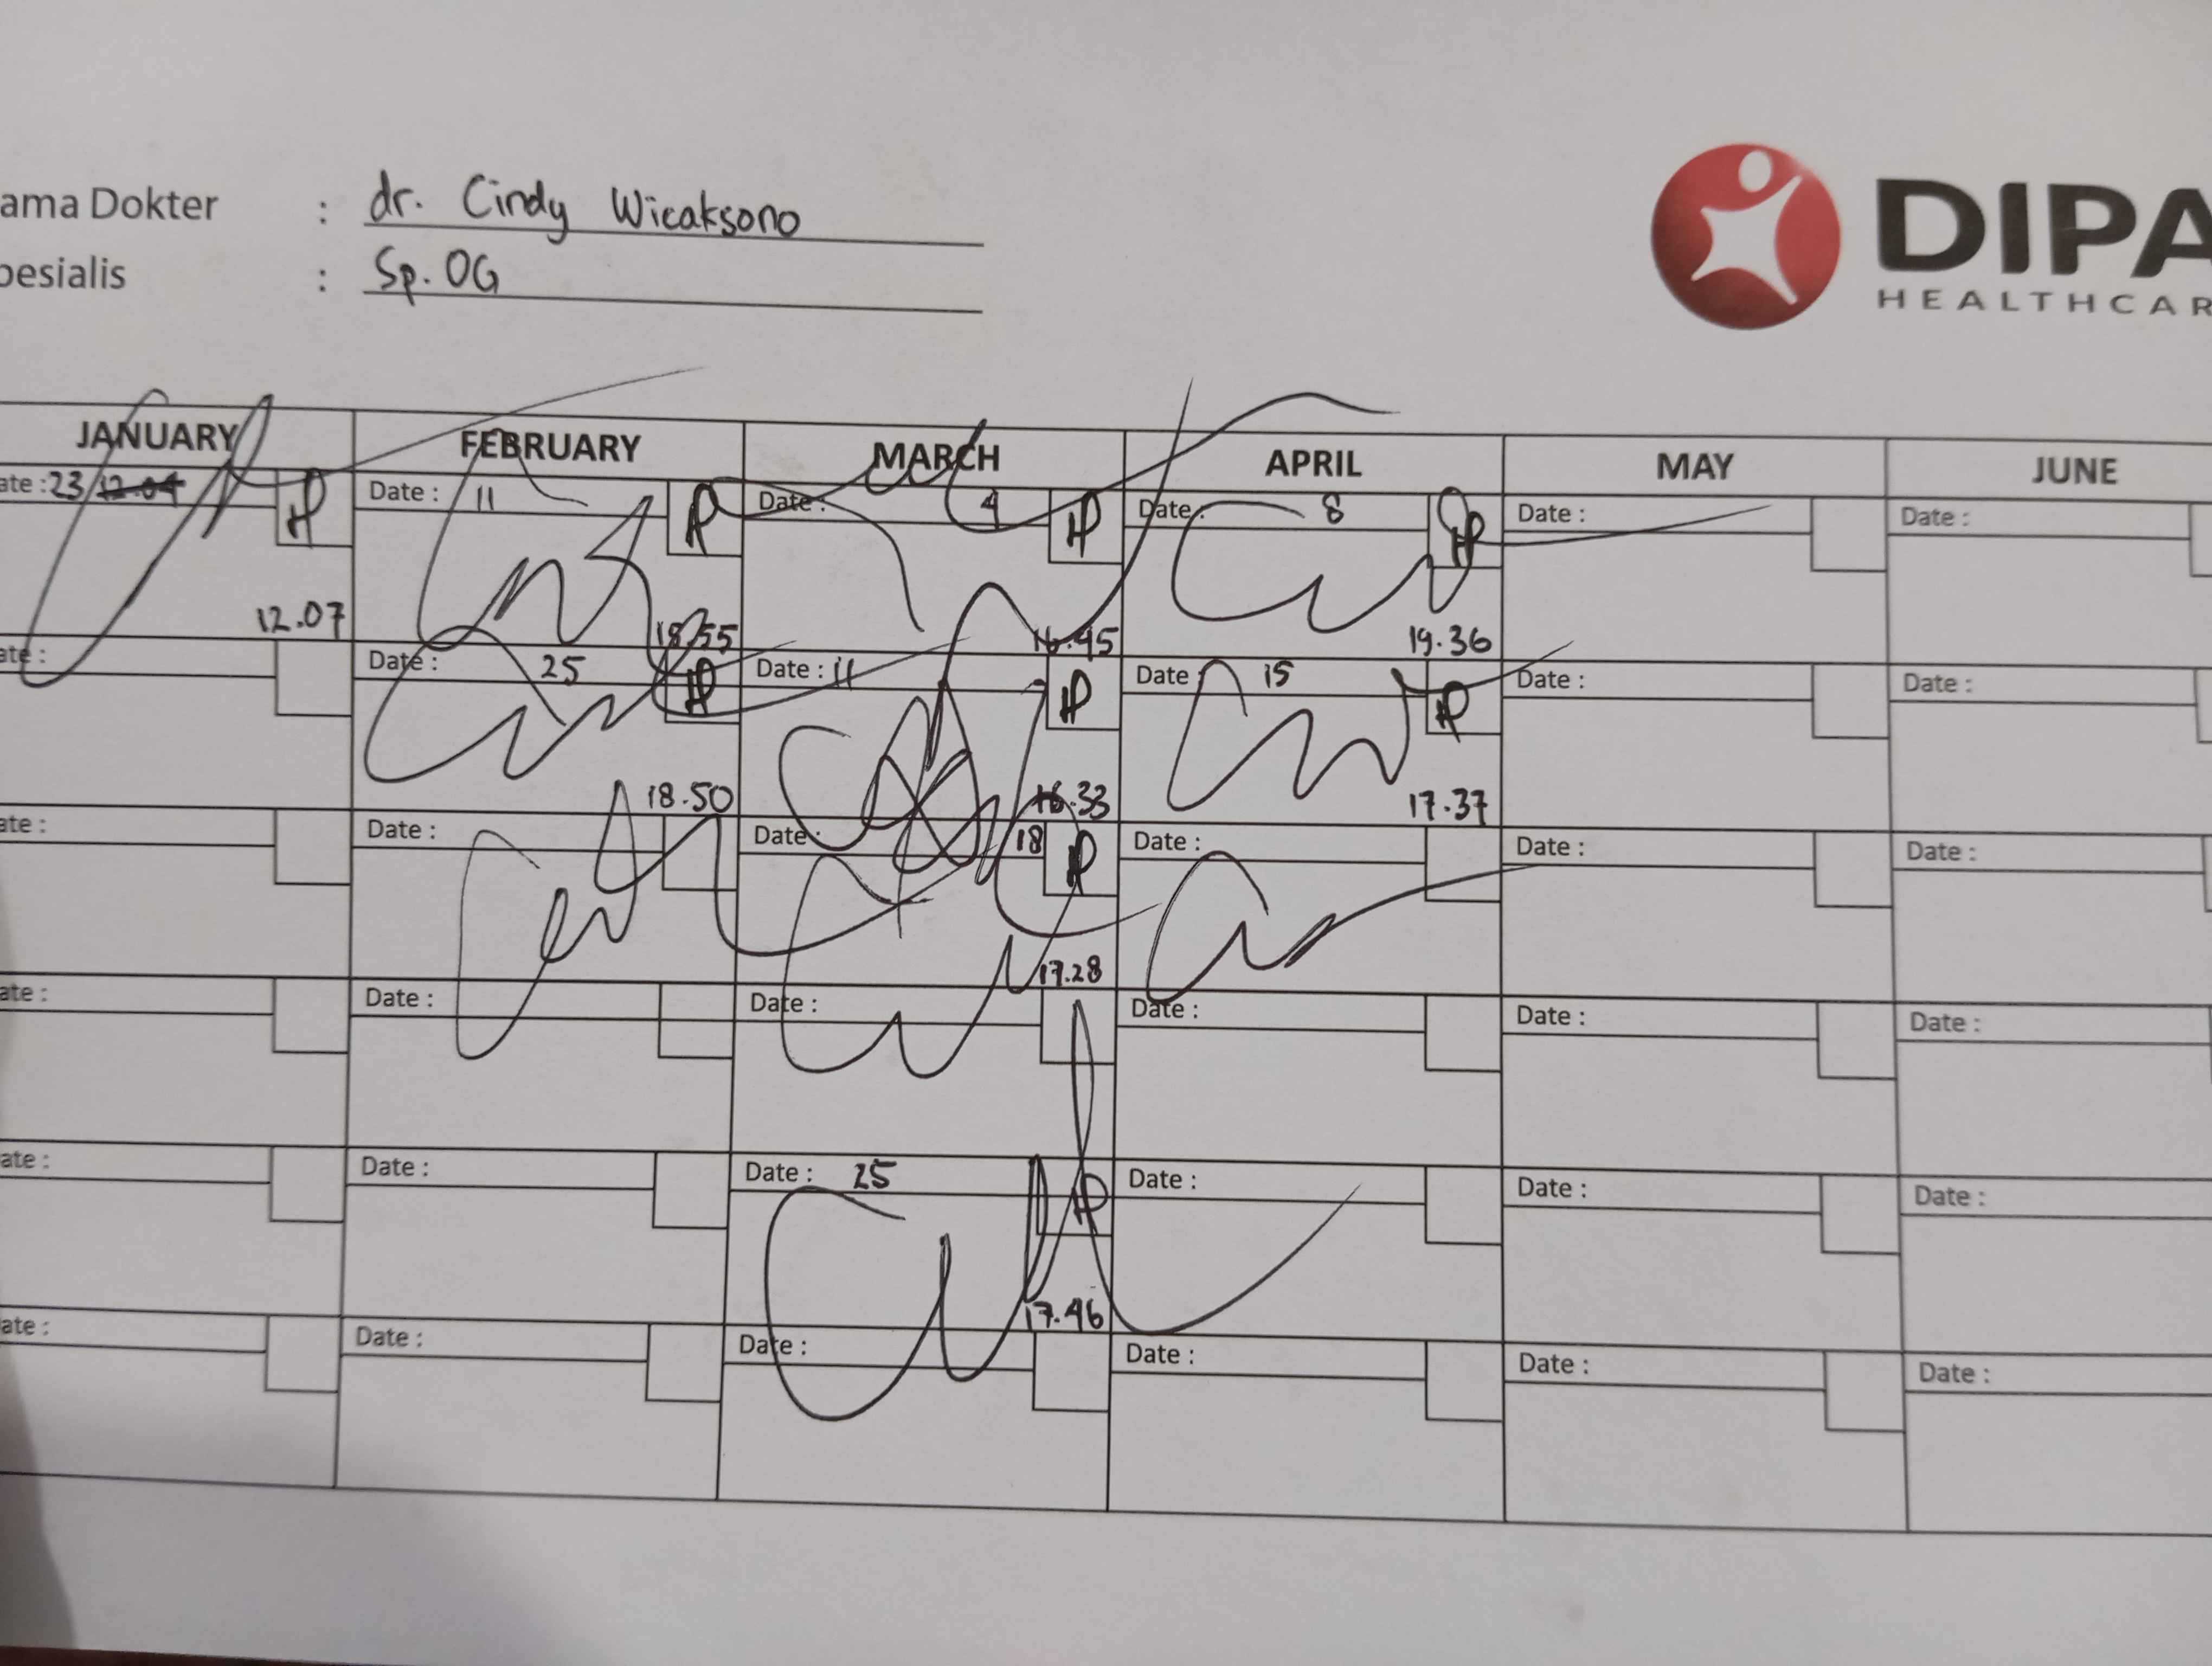 ama Dokter : dr. Cindy Wicaksono
pesialis : Sp. OG
DIPA
HEALTHCAR
JANUARY FEBRUARY MARCH APRIL MAY JUNE
ate : 23 12.04 Date : 11 Date : 4 Date : 8 Date : Date :
12.07 18.55 16.45 19.36
ate : Date : 25 Date : 11 Date : 15 Date : Date :
18.50 16.33 17.37
ate : Date : Date : 18 Date : Date : Date :
17.28
ate : Date : Date : Date : Date : Date :
ate : Date : Date : 25 Date : Date : Date :
17.46
ate : Date : Date : Date : Date : Date :